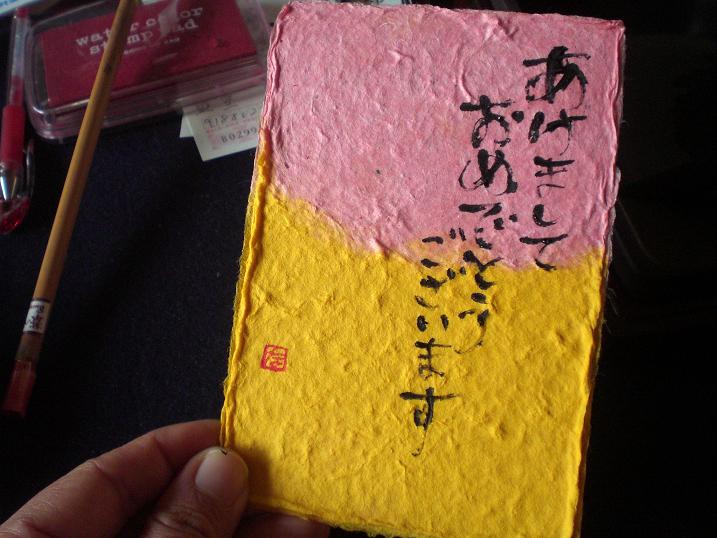 あけまして
おめでとう
ございます
water color
stamp pad